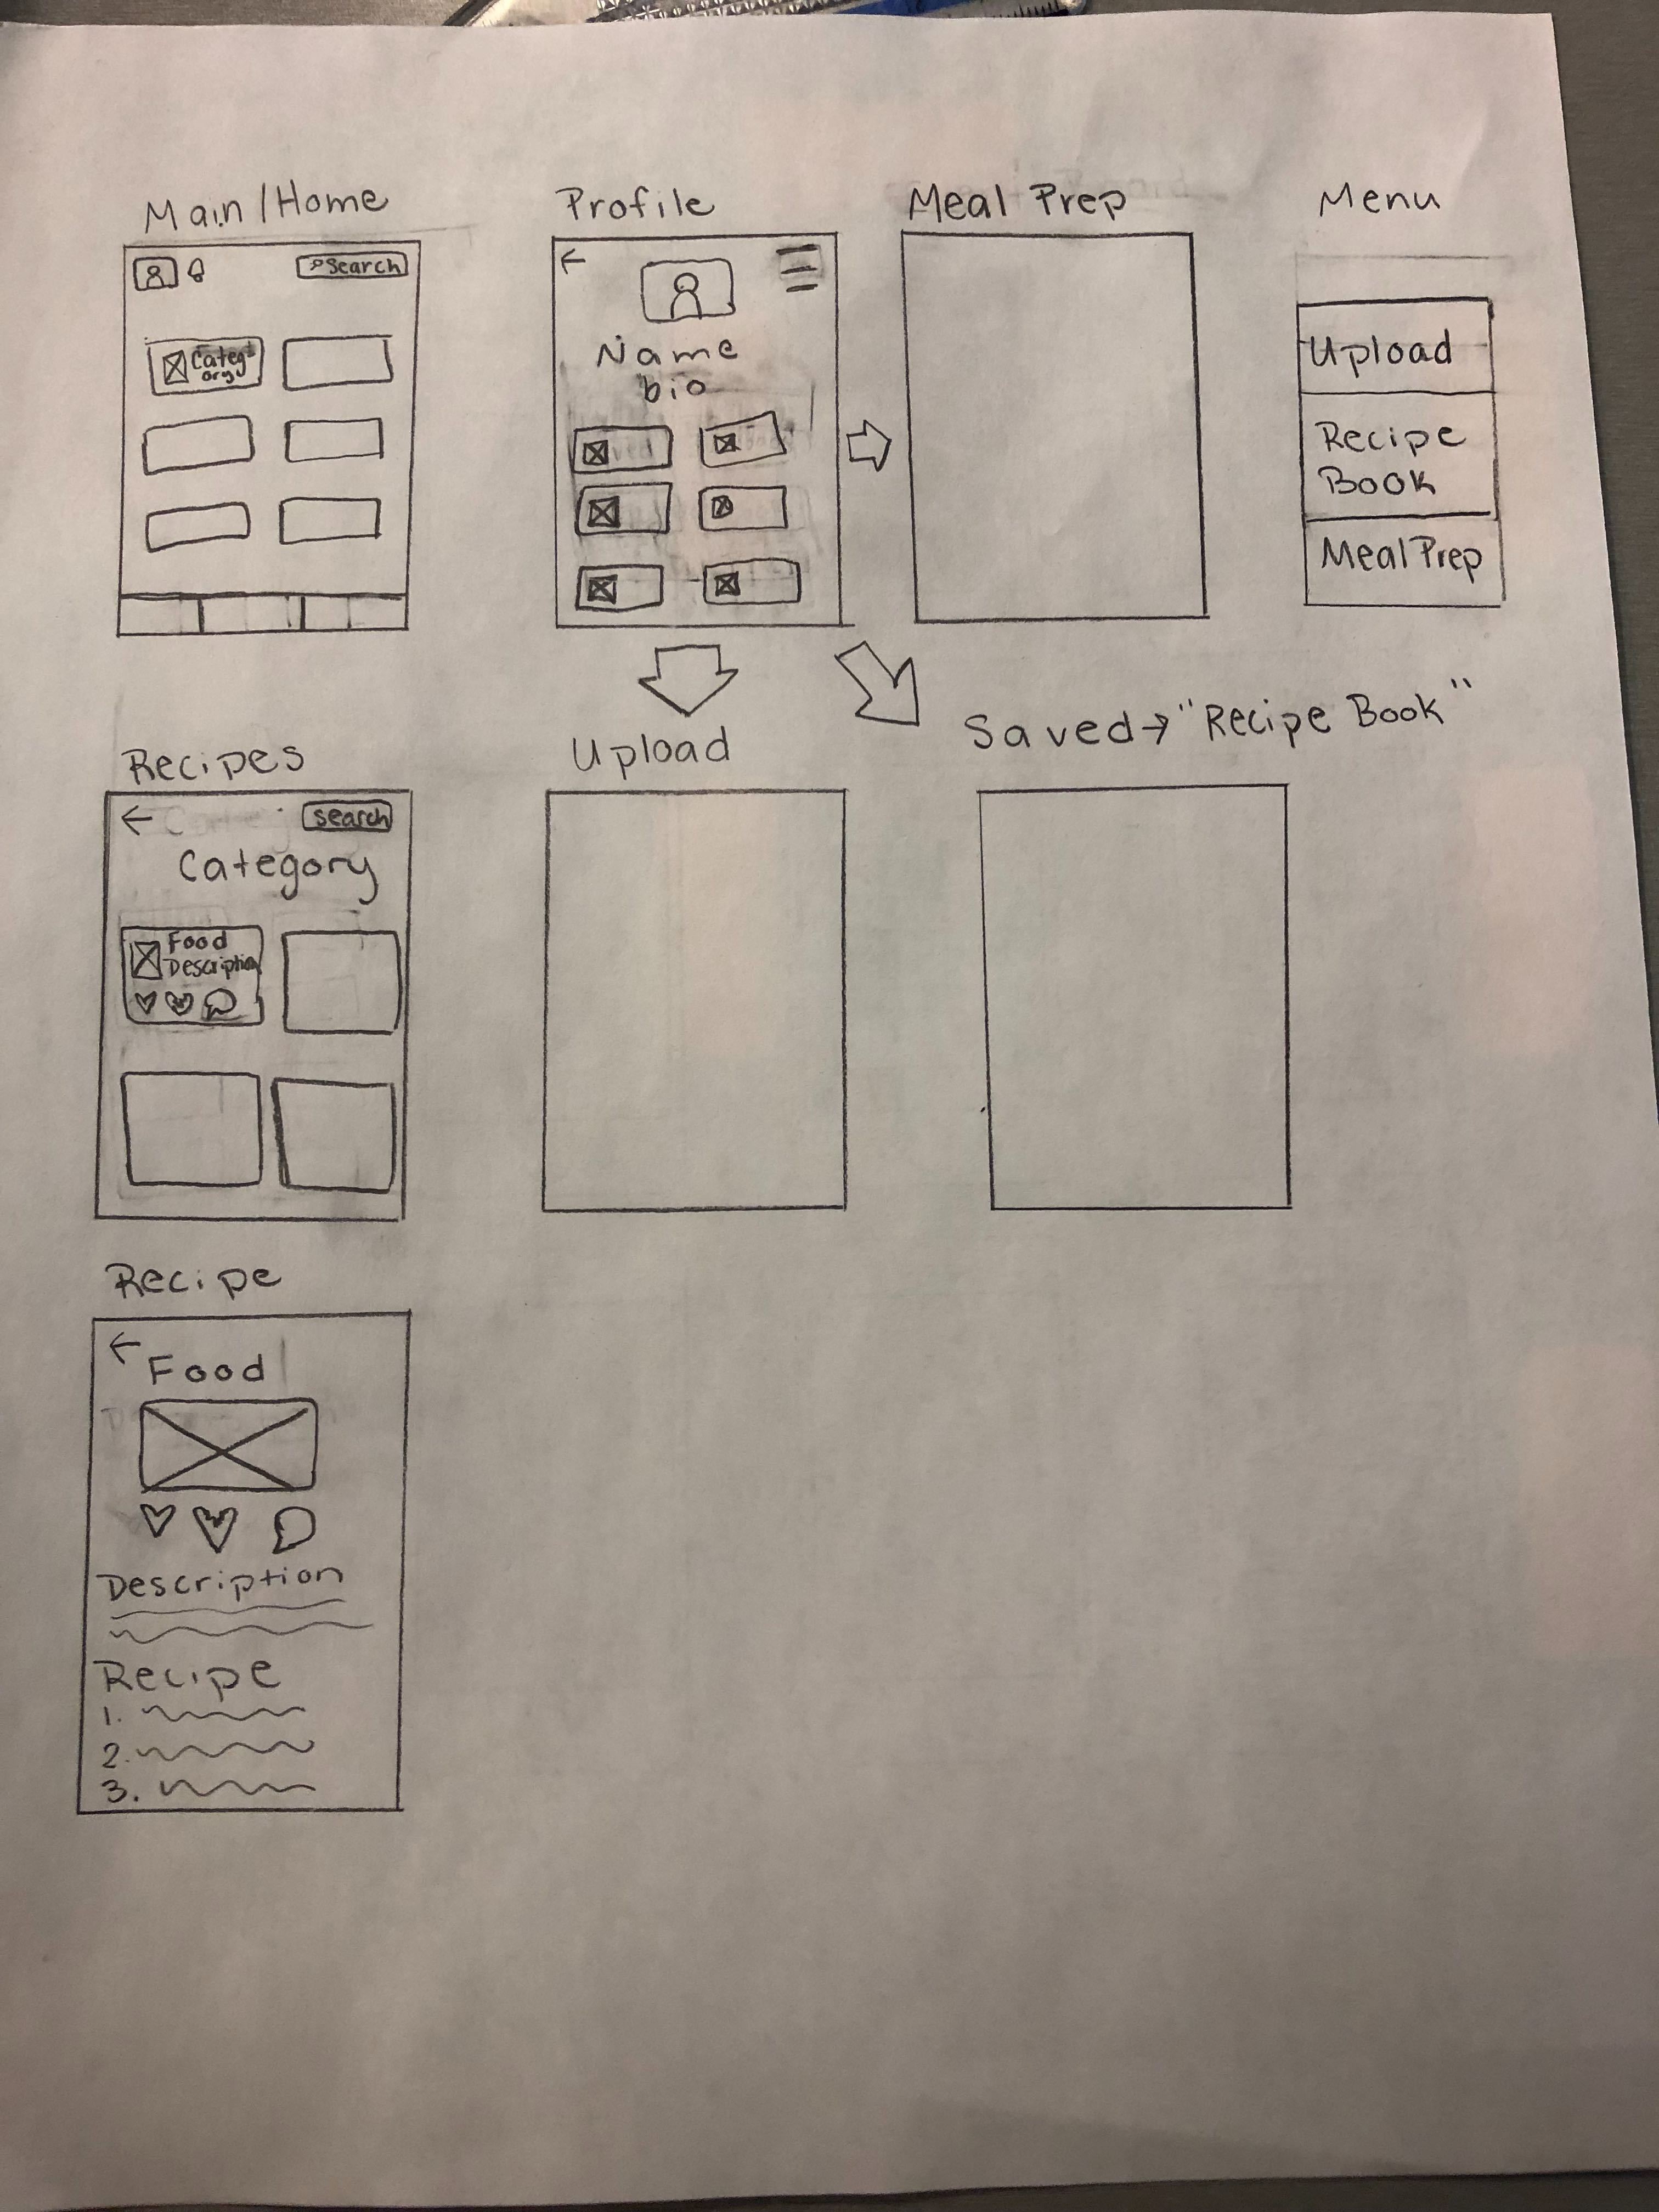 Main/Home
Search
Categ
ory
Profile
Name
bio
Meal Prep
Menu
Upload
Recipe
Book
Meal Prep
Recipes
search
Category
Food
Description
Upload
Saved→"Recipe Book"
Recipe
Food
Description
Recipe
1.
2.
3.